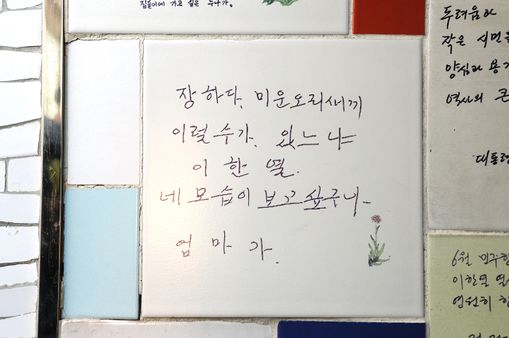 집들이에 가고 싶은 누나가.
장하다. 미운오리새끼
이럴수가. 있느냐
이 한 열.
네 모습이 보고 싶구나-
엄 마 가.
두려움과
작은 시민
양심과 용기
역사의 큰
대통령
6월 민주항
이한열 열
영원히